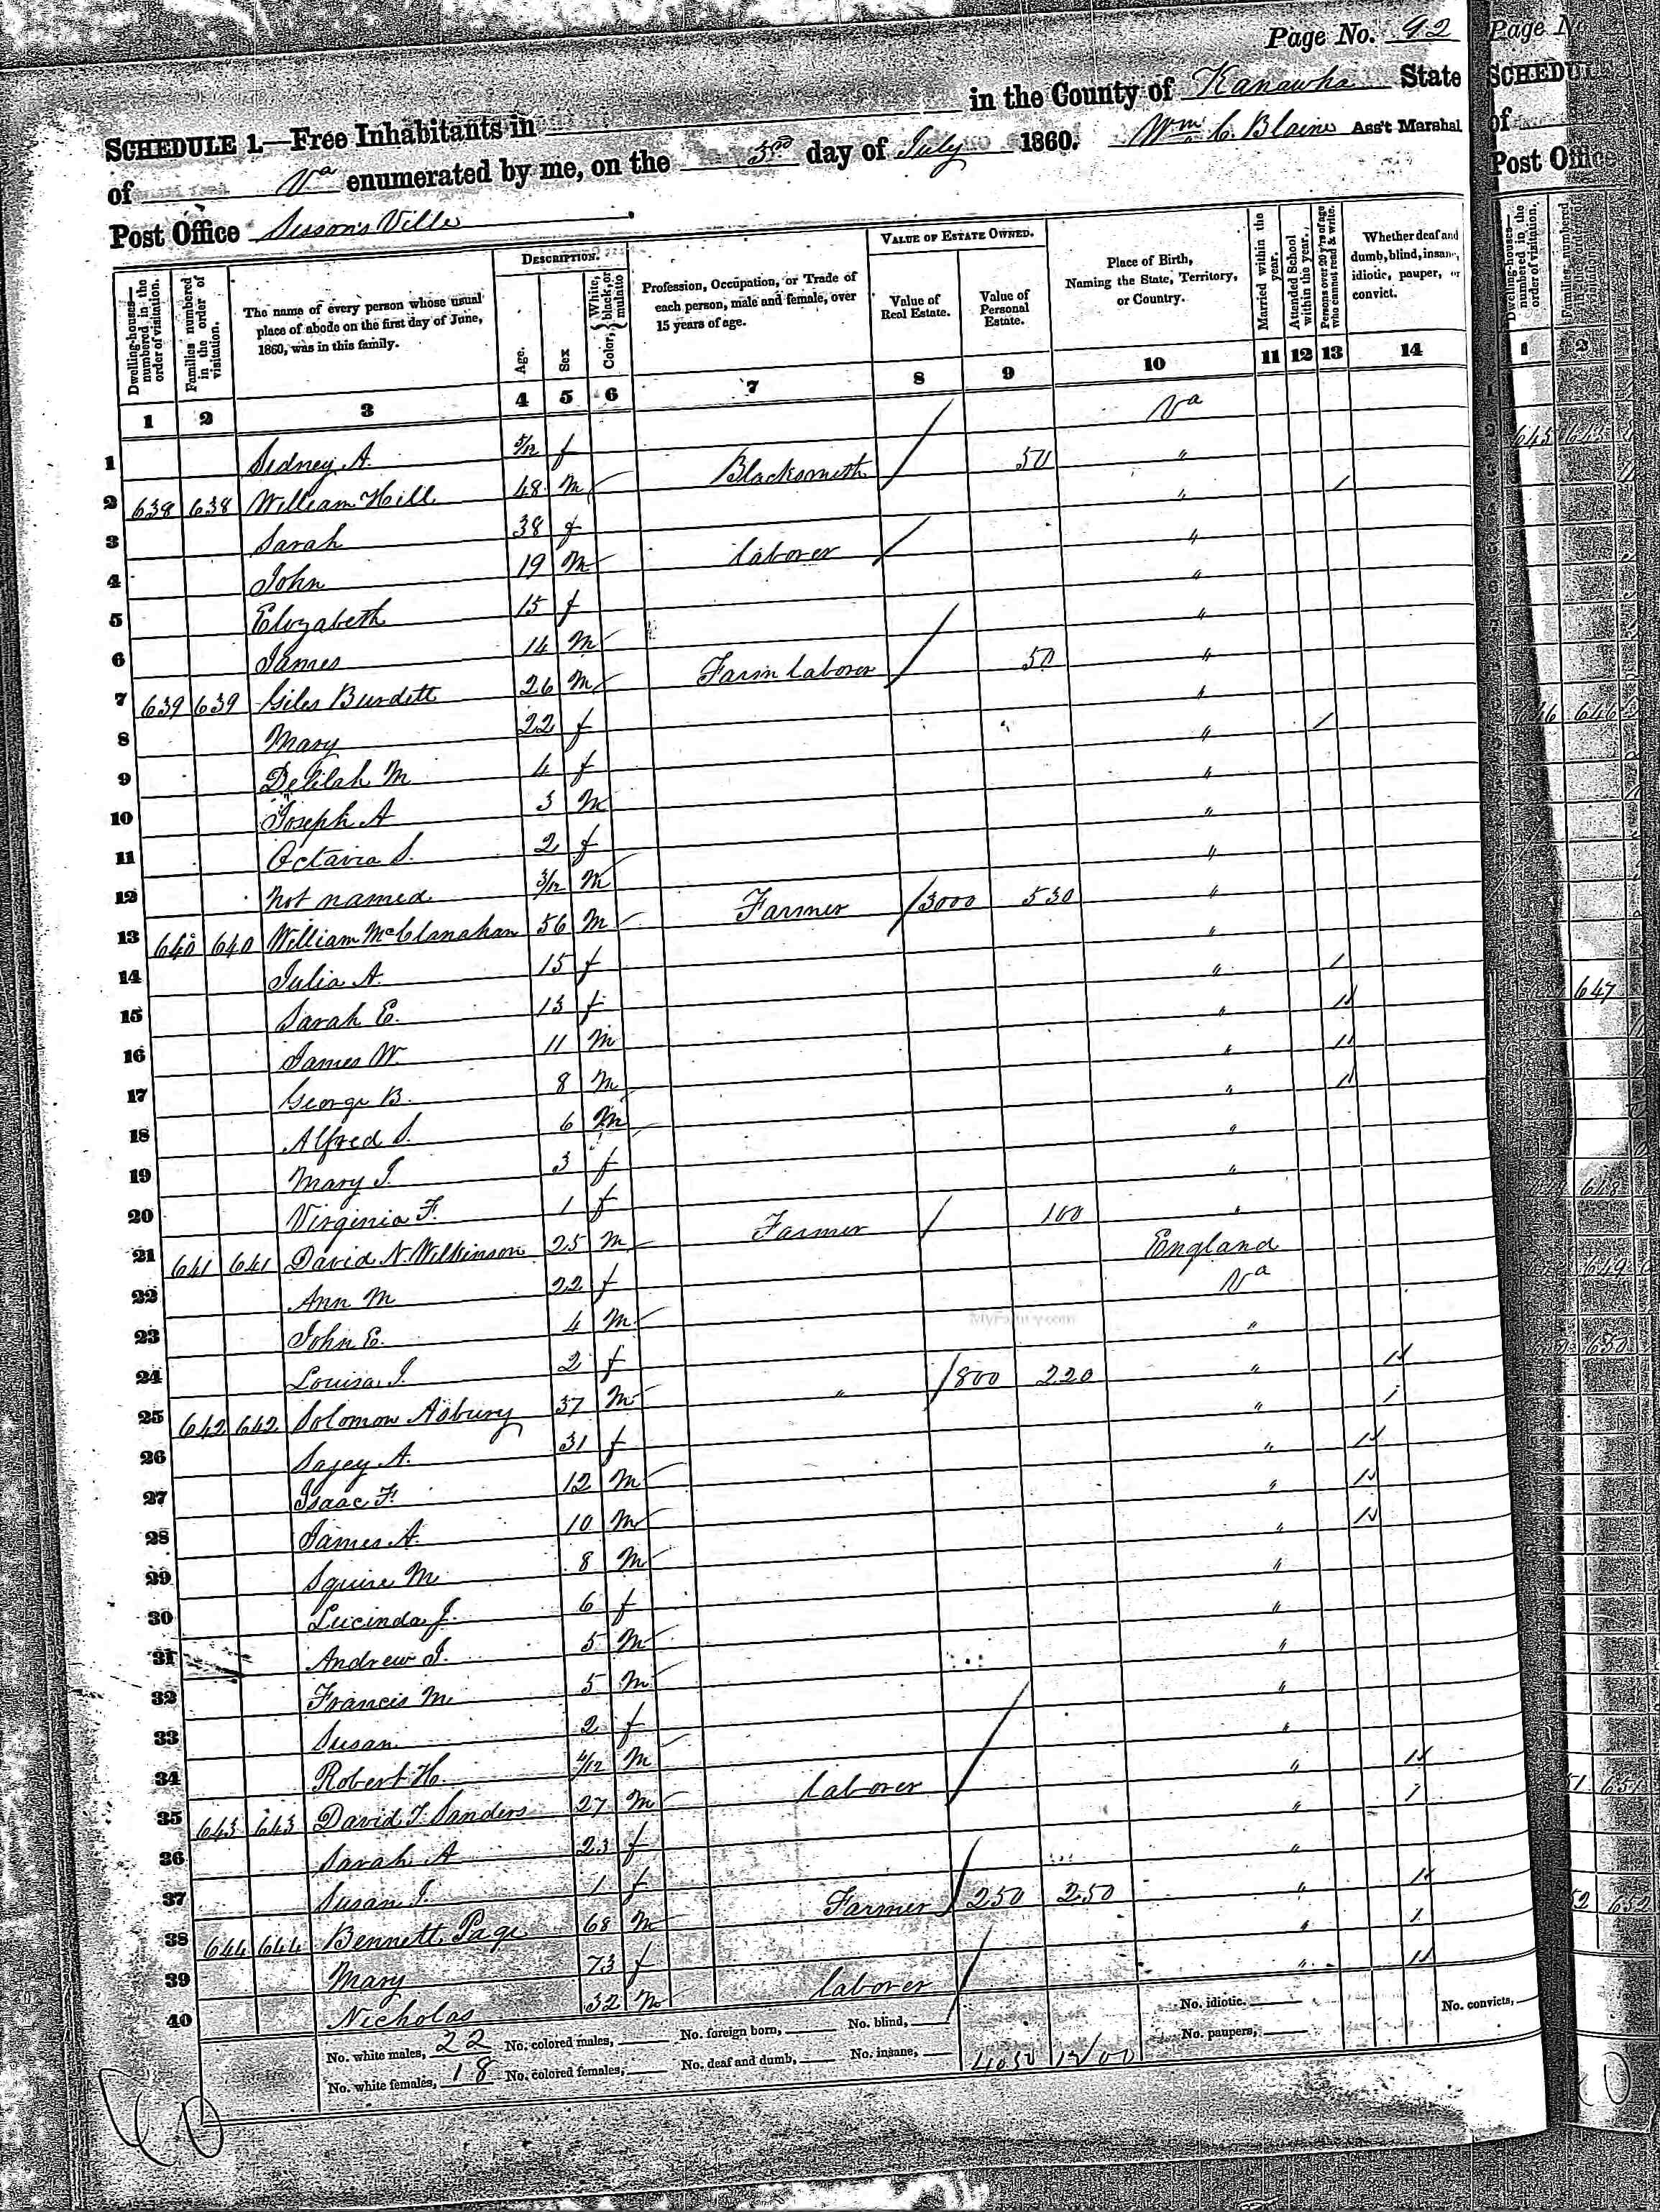 Page No. 92
SCHEDULE 1.—Free Inhabitants in in the County of Kanawha State
of Va enumerated by me, on the 3rd day of July 1860. Wm C Blaine Ass't Marshal
Post Office Sisson's Ville
Dwelling-houses—numbered in the order of visitation. Families numbered in the order of visitation. The name of every person whose usual place of abode on the first day of June, 1860, was in this family. DESCRIPTION. Age. Sex Color, White, black, or mulatto Profession, Occupation, or Trade of each person, male and female, over 15 years of age. VALUE OF ESTATE OWNED. Value of Real Estate. Value of Personal Estate. Place of Birth, Naming the State, Territory, or Country. Married within the year. Attended School within the year. Persons over 20 y'rs of age who cannot read & write. Whether deaf and dumb, blind, insane, idiotic, pauper, or convict.
1 2 3 4 5 6 7 8 9 10 11 12 13 14
1 Sidney A. 5/12 f Va
2 638 638 William Hill 48 M Blacksmith / 50 "
3 Sarah 38 f " /
4 John 19 M laborer / "
5 Elizabeth 15 f "
6 James 14 M "
7 639 639 Giles Burdett 26 M Farm laborer / 50 "
8 Mary 22 f "
9 Delilah M 4 f " /
10 Joseph A 3 M "
11 Octavia S. 2 f "
12 Not named 3/12 M "
13 640 640 William McClanahan 56 M Farmer / 3000 530 "
14 Julia A. 15 f "
15 Sarah E. 13 f " 1
16 James W. 11 M " 1
17 George B. 8 M " 1
18 Alfred S. 6 M " 1
19 Mary J. 3 f "
20 Virginia F. 1 f "
21 641 641 David N. Wilkinson 25 M Farmer / 100 "
22 Ann M 22 f England
23 John E. 4 M Va
24 Louisa J. 2 f "
25 642 642 Solomon Asbury 37 M " / 800 220 " 1
26 A. 31 f " 1
27 Isaac F. 12 M " 1
28 James A. 10 M " 1
29 Squire M 8 M " 1
30 Lucinda J. 6 f "
31 Andrew J. 5 M "
32 Francis M. 5 M "
33 Susan 2 f "
34 Robert H. 4/12 M "
35 643 643 David T. Sanders 27 M laborer / " 1
36 Sarah A 23 f " 1
37 Susan J. 1 f "
38 644 644 Bennett Page 68 M Farmer / 250 250 " 1
39 Mary 73 f " 1
40 Nicholas 32 M laborer / " 1
No. white males, 22 No. colored males, No. foreign born, No. blind, No. idiotic, No. convicts,
No. white females, 18 No. colored females, No. deaf and dumb, No. insane, 4050 1200 No. paupers,
MyFamily.com
Page No
SCHEDU
of
Post Office
Dwelling-houses—numbered in the order of visitation. Families numbered in the order of visitation.
1 2
645 645
646
647
648
649
650
51 651
52 652